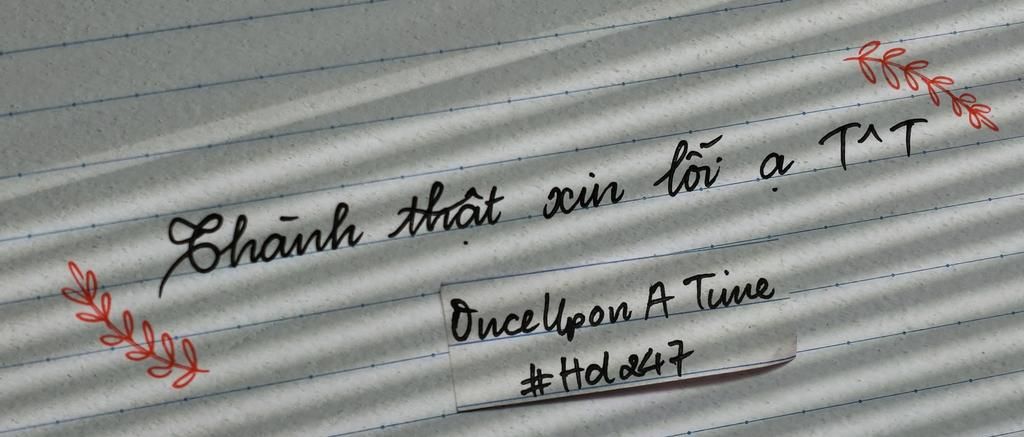 Thành thật xin lỗi ạ T^T
OnceUpon A Time
#Hd247